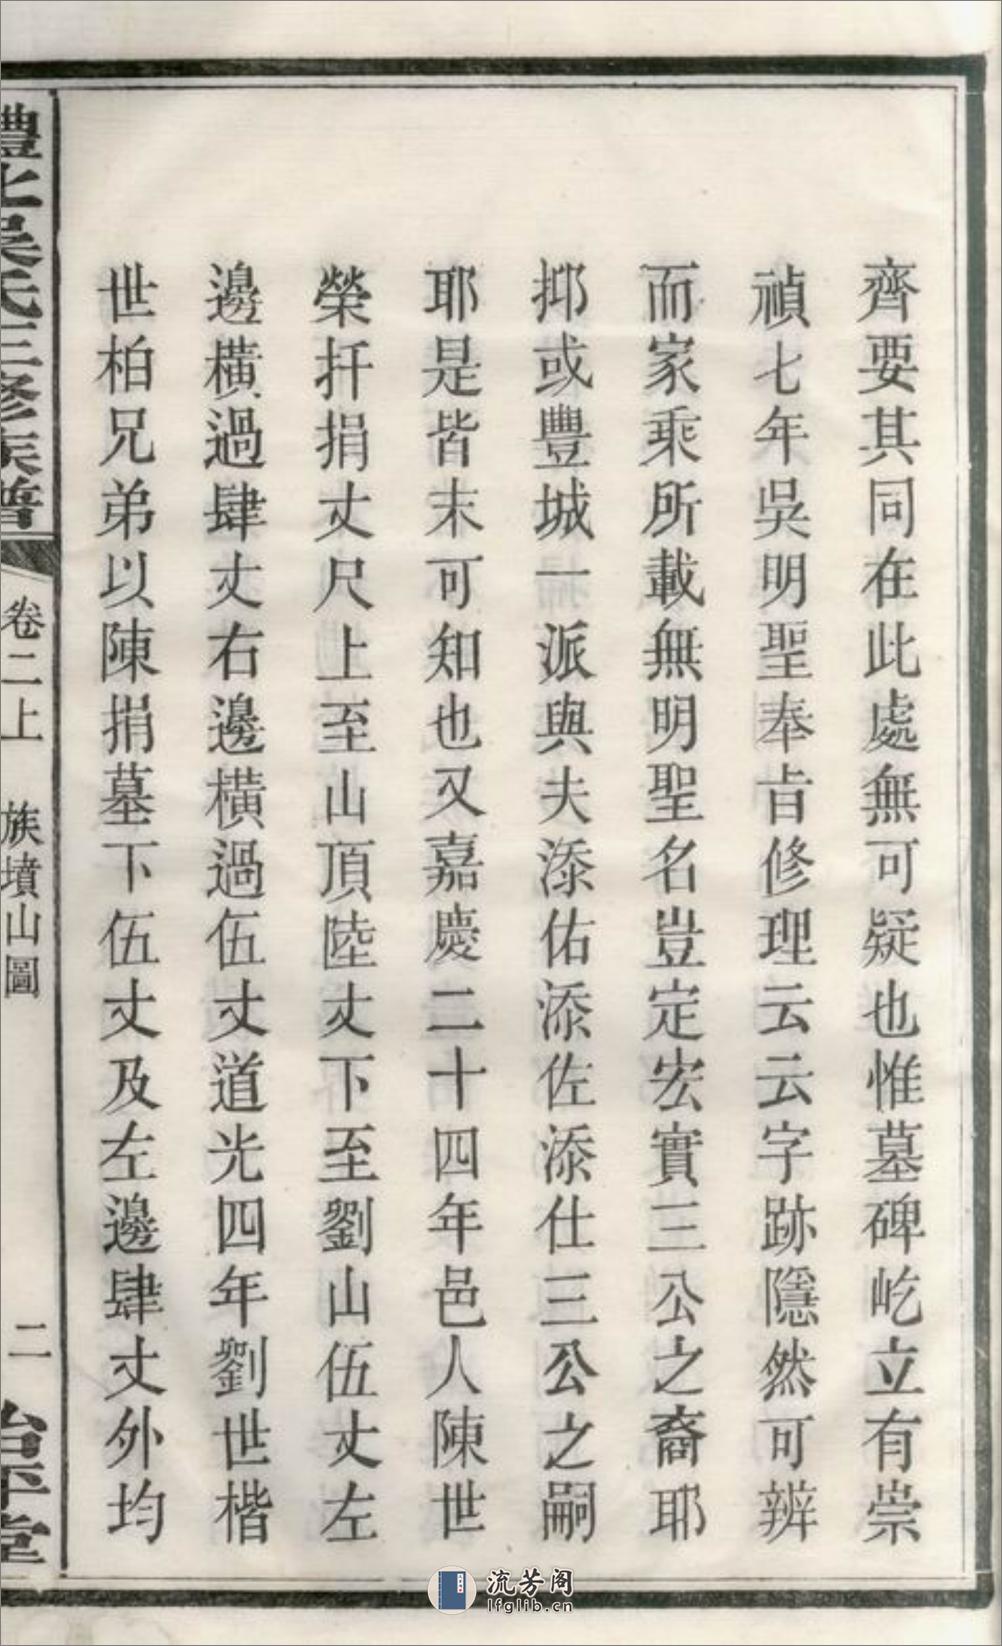 齊要其同在此處無可疑也惟墓碑屹立有崇
禎七年吳明聖奉㫖修理云云字跡隱然可辨
而家乘所載無明聖名豈定宏實三公之裔耶
抑或豐城一派與夫添佑添佐添仕三公之嗣
耶是皆未可知也又嘉慶二十四年邑人陳世
榮扦捐丈尺上至山頂陸丈下至劉山伍丈左
邊橫過肆丈右邊橫過伍丈道光四年劉世楷
世柏兄弟以陳捐墓下伍丈及左邊肆丈外均
澧北吳氏三修族譜
卷二上
族墳山圖
二
治平堂
流芳阁
lfglib.cn